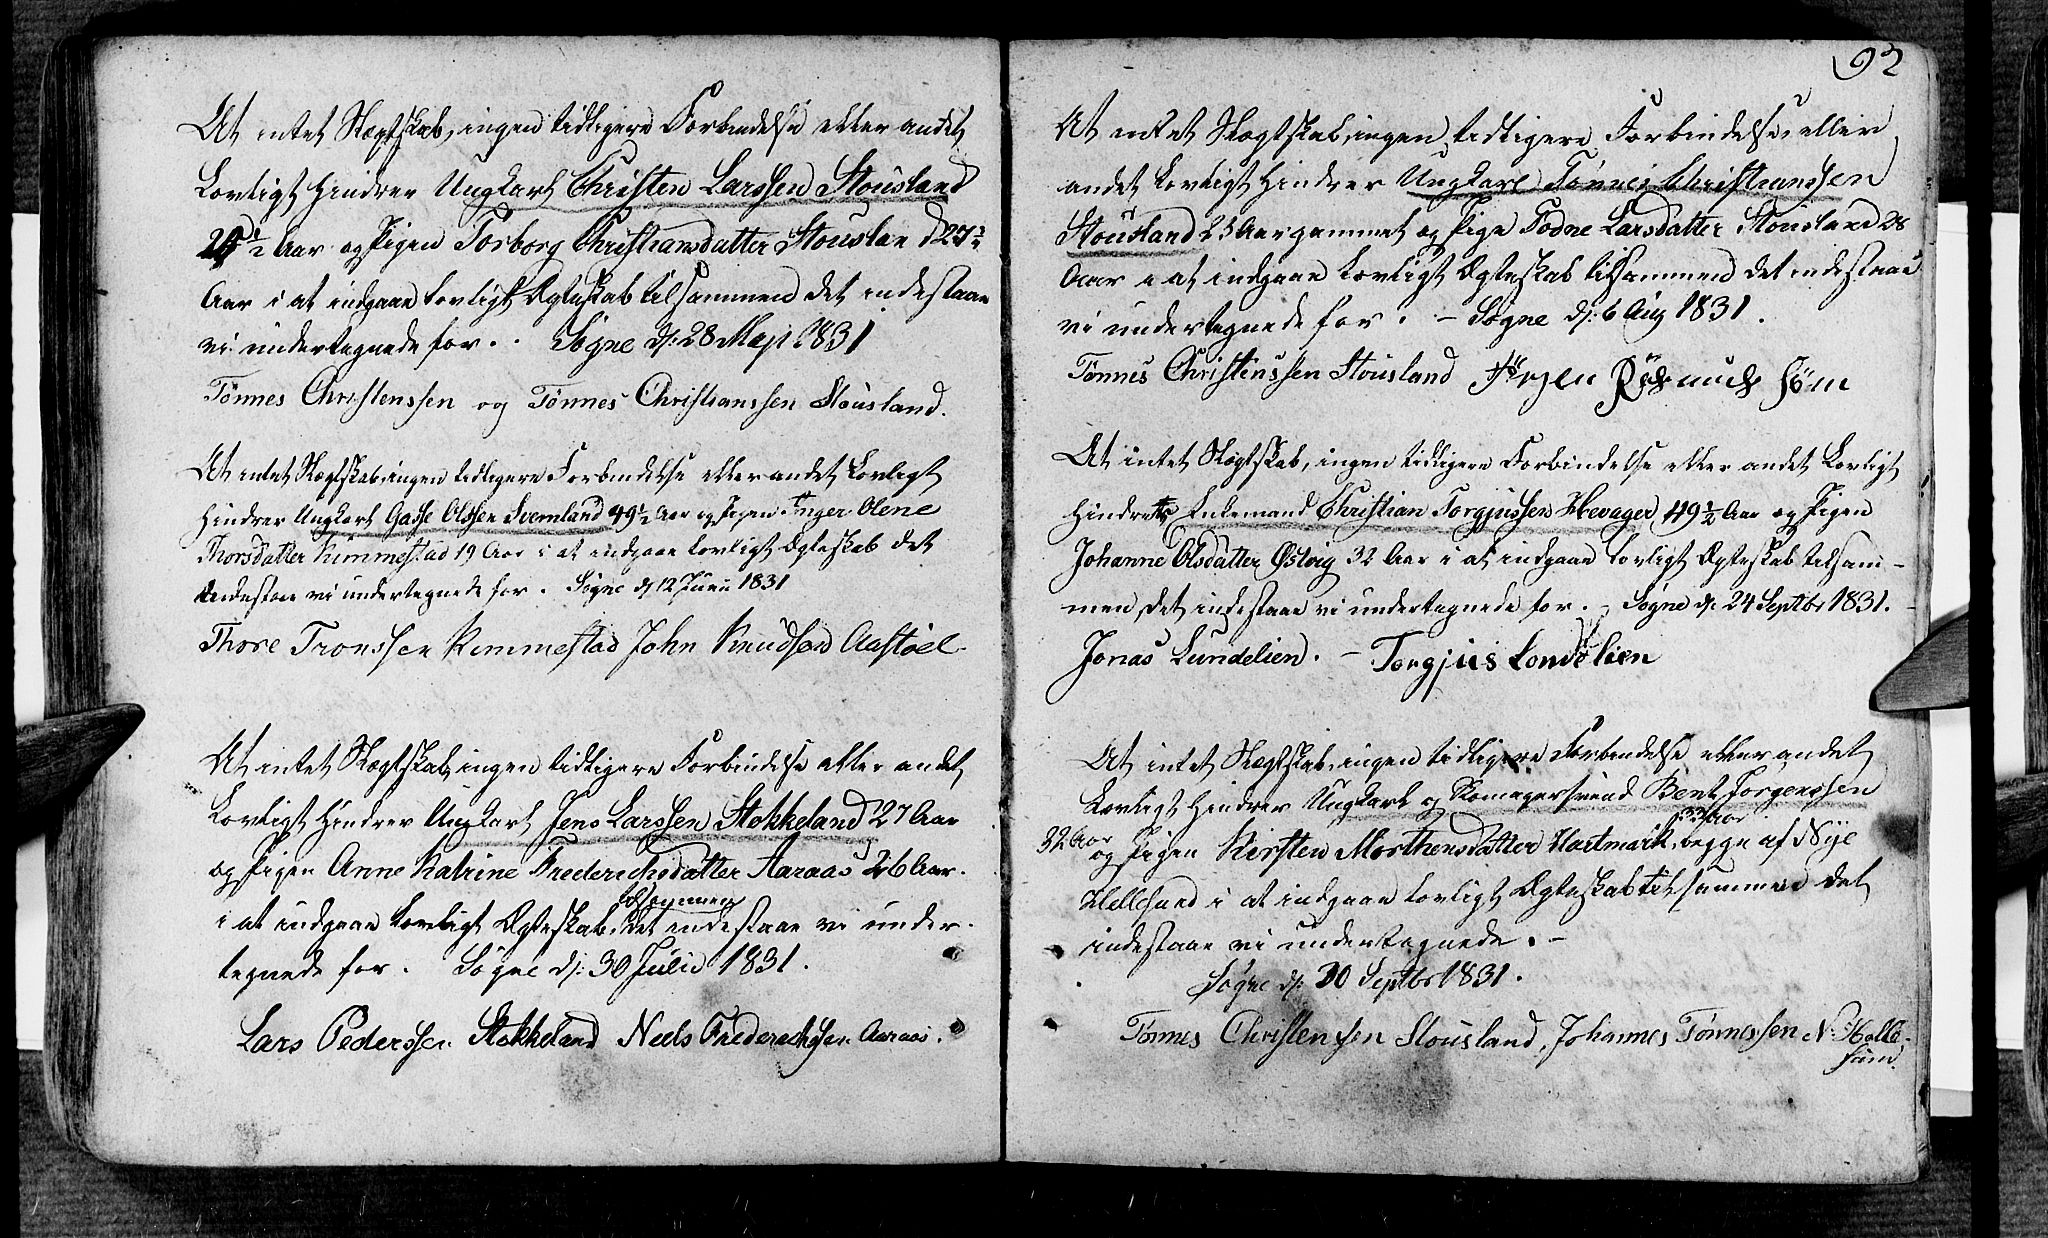 At intet Slægtskab, ingen tidligere Forbindelse eller andet
Lovligt Hindrer Ungkarl Christen Larssen Stousland
½ Aar og Pigen Torborg Christiansdatter Stousland 27½
Aar i at indgaae Lovligt Ægteskab tilsammen det indestaae
vi undertegnede for. . Søgne d: 28 May 1831
Tønnes Christenssen og Tønnes Christianssen Stousland.
At intet Slægtskab, ingen tidligere Forbindelse eller andet Lovligt
Hindrer Ungkarl Gasse Olssen Svemland 49½ Aar og Pigen Inger Olene
Thorsdatter Rimmestad 19 Aar i at indgaae Lovligt Ægteskab det
indestaae vi undertegnede for. Søgne d 12 Junii 1831
Thore Tronssen Rimmestad John Knudsen Aastøel
At intet Slægtskab, ingen tidligere Forbindelse eller andet
Lovligt Hindrer Ungkarl Jens Larssen Stokkeland 27 Aar
og Pigen Anne Katrine Frederichsdatter Aaraas 26 Aar.
tilsammen
i at indgaae Lovligt Ægteskab, det indestaae vi under-
tegnede for. Søgne d: 30 Julii 1831.
Lars Pederssen Stokkeland Neels Frederechssen Aaraas.
92
At intet Slægtskab, ingen tidligere Forbindelse eller
andet Lovligt Hindrer Ungkarl Tønnes Christianssen
Stousland 25 Aar gammel og Pige Todne Larsdatter Stousland 28
Aar i at indgaae Lovligt Ægteskab tilsammen det indestaae
vi undertegnede for. - Søgne d: 6 Aug 1831.
Tønnes Christenssen Stousland Jørgen Rasmus Høm
At intet Slægtskab, ingen tidligere Forbindelse eller andet Lovligt
Hindrer Enkemand Christian Torgjussen Hevager, 49½ Aar og Pigen
Johanne Olsdatter Østvig 32 Aar i at indgaae Lovligt Ægteskab tilsam-
men, det indestaae vi undertegnede for. Søgne d: 24 Septbr 1831.
Jonas Lundelien. - Torgjus Londelien
At intet Slægtskab, ingen tidligere Forbindelse eller andet
Lovligt Hindrer Ungkarl og Skomagersvend Bent Jørgenssen
32 Aar
og Pigen Kirsten Morthensdatter Hartmark 33 Aar begge af Nye
Hellesund i at indgaae Lovligt Ægteskab tilsammen det
indestaae vi undertegnede. -
Søgne d: 30 Septbr 1831.
Tønnes Christenssen Stousland, Johannes Tønnessen N. Helle-
sund.